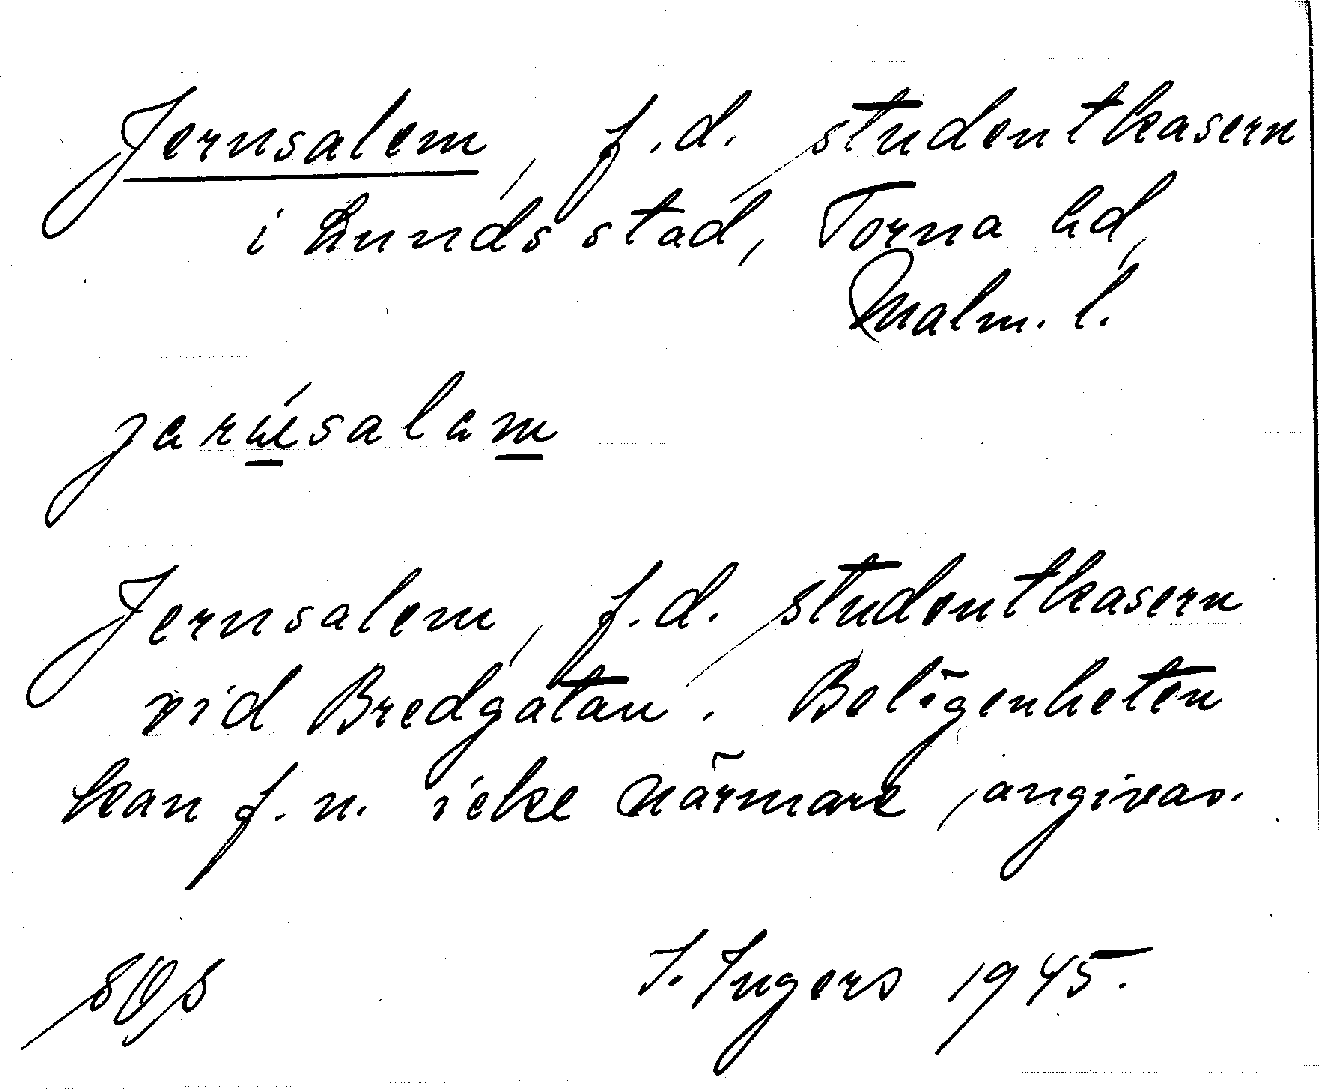 Jerusalem, f.d. studentkasern
i Lunds stad, Torna hd,
Malm. l.
jarúsalam
Jerusalem, f.d. studentkasern
vid Bredgatan. Belägenheten
kan f.n. icke närmare angivas.
I. Ingers 1945.